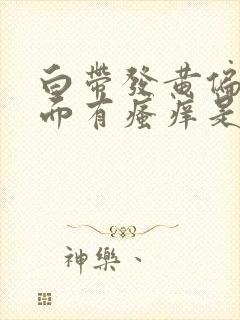 白帶發黃偏
而有瘙痒是
神樂、